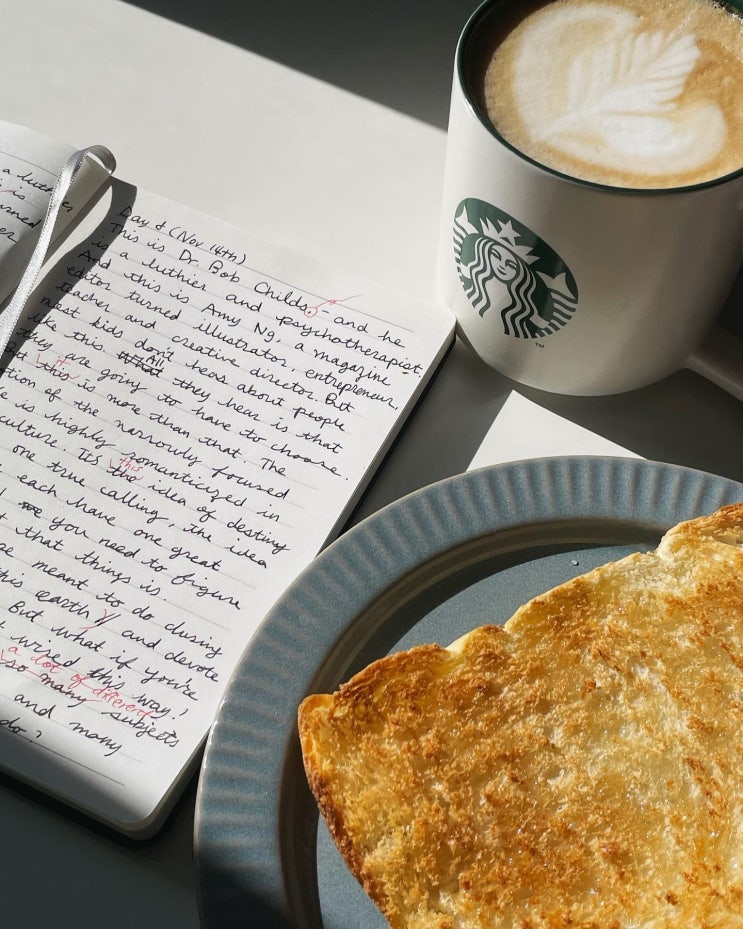 a luthier
is
Day 4 (Nov 14th)
This is Dr. Bob Childs - and he
is a luthier and psychotherapist.
And this is Amy Ng, a magazine
editor turned illustrator, entrepreneur,
teacher and creative director. But
most kids don't hear about people
like this. What All they hear is that
they are going to have to choose.
it
this is more than that. The
tion of the narrowly focused
e is highly romanticized in
culture. Its the this idea of destiny
one true calling, the idea
each have one great
you need to figure
t that things is.
meant to do during
this earth, and devote
But what if you're
t wired this way?
a lot of different
so many subjects
and many
do?
TM